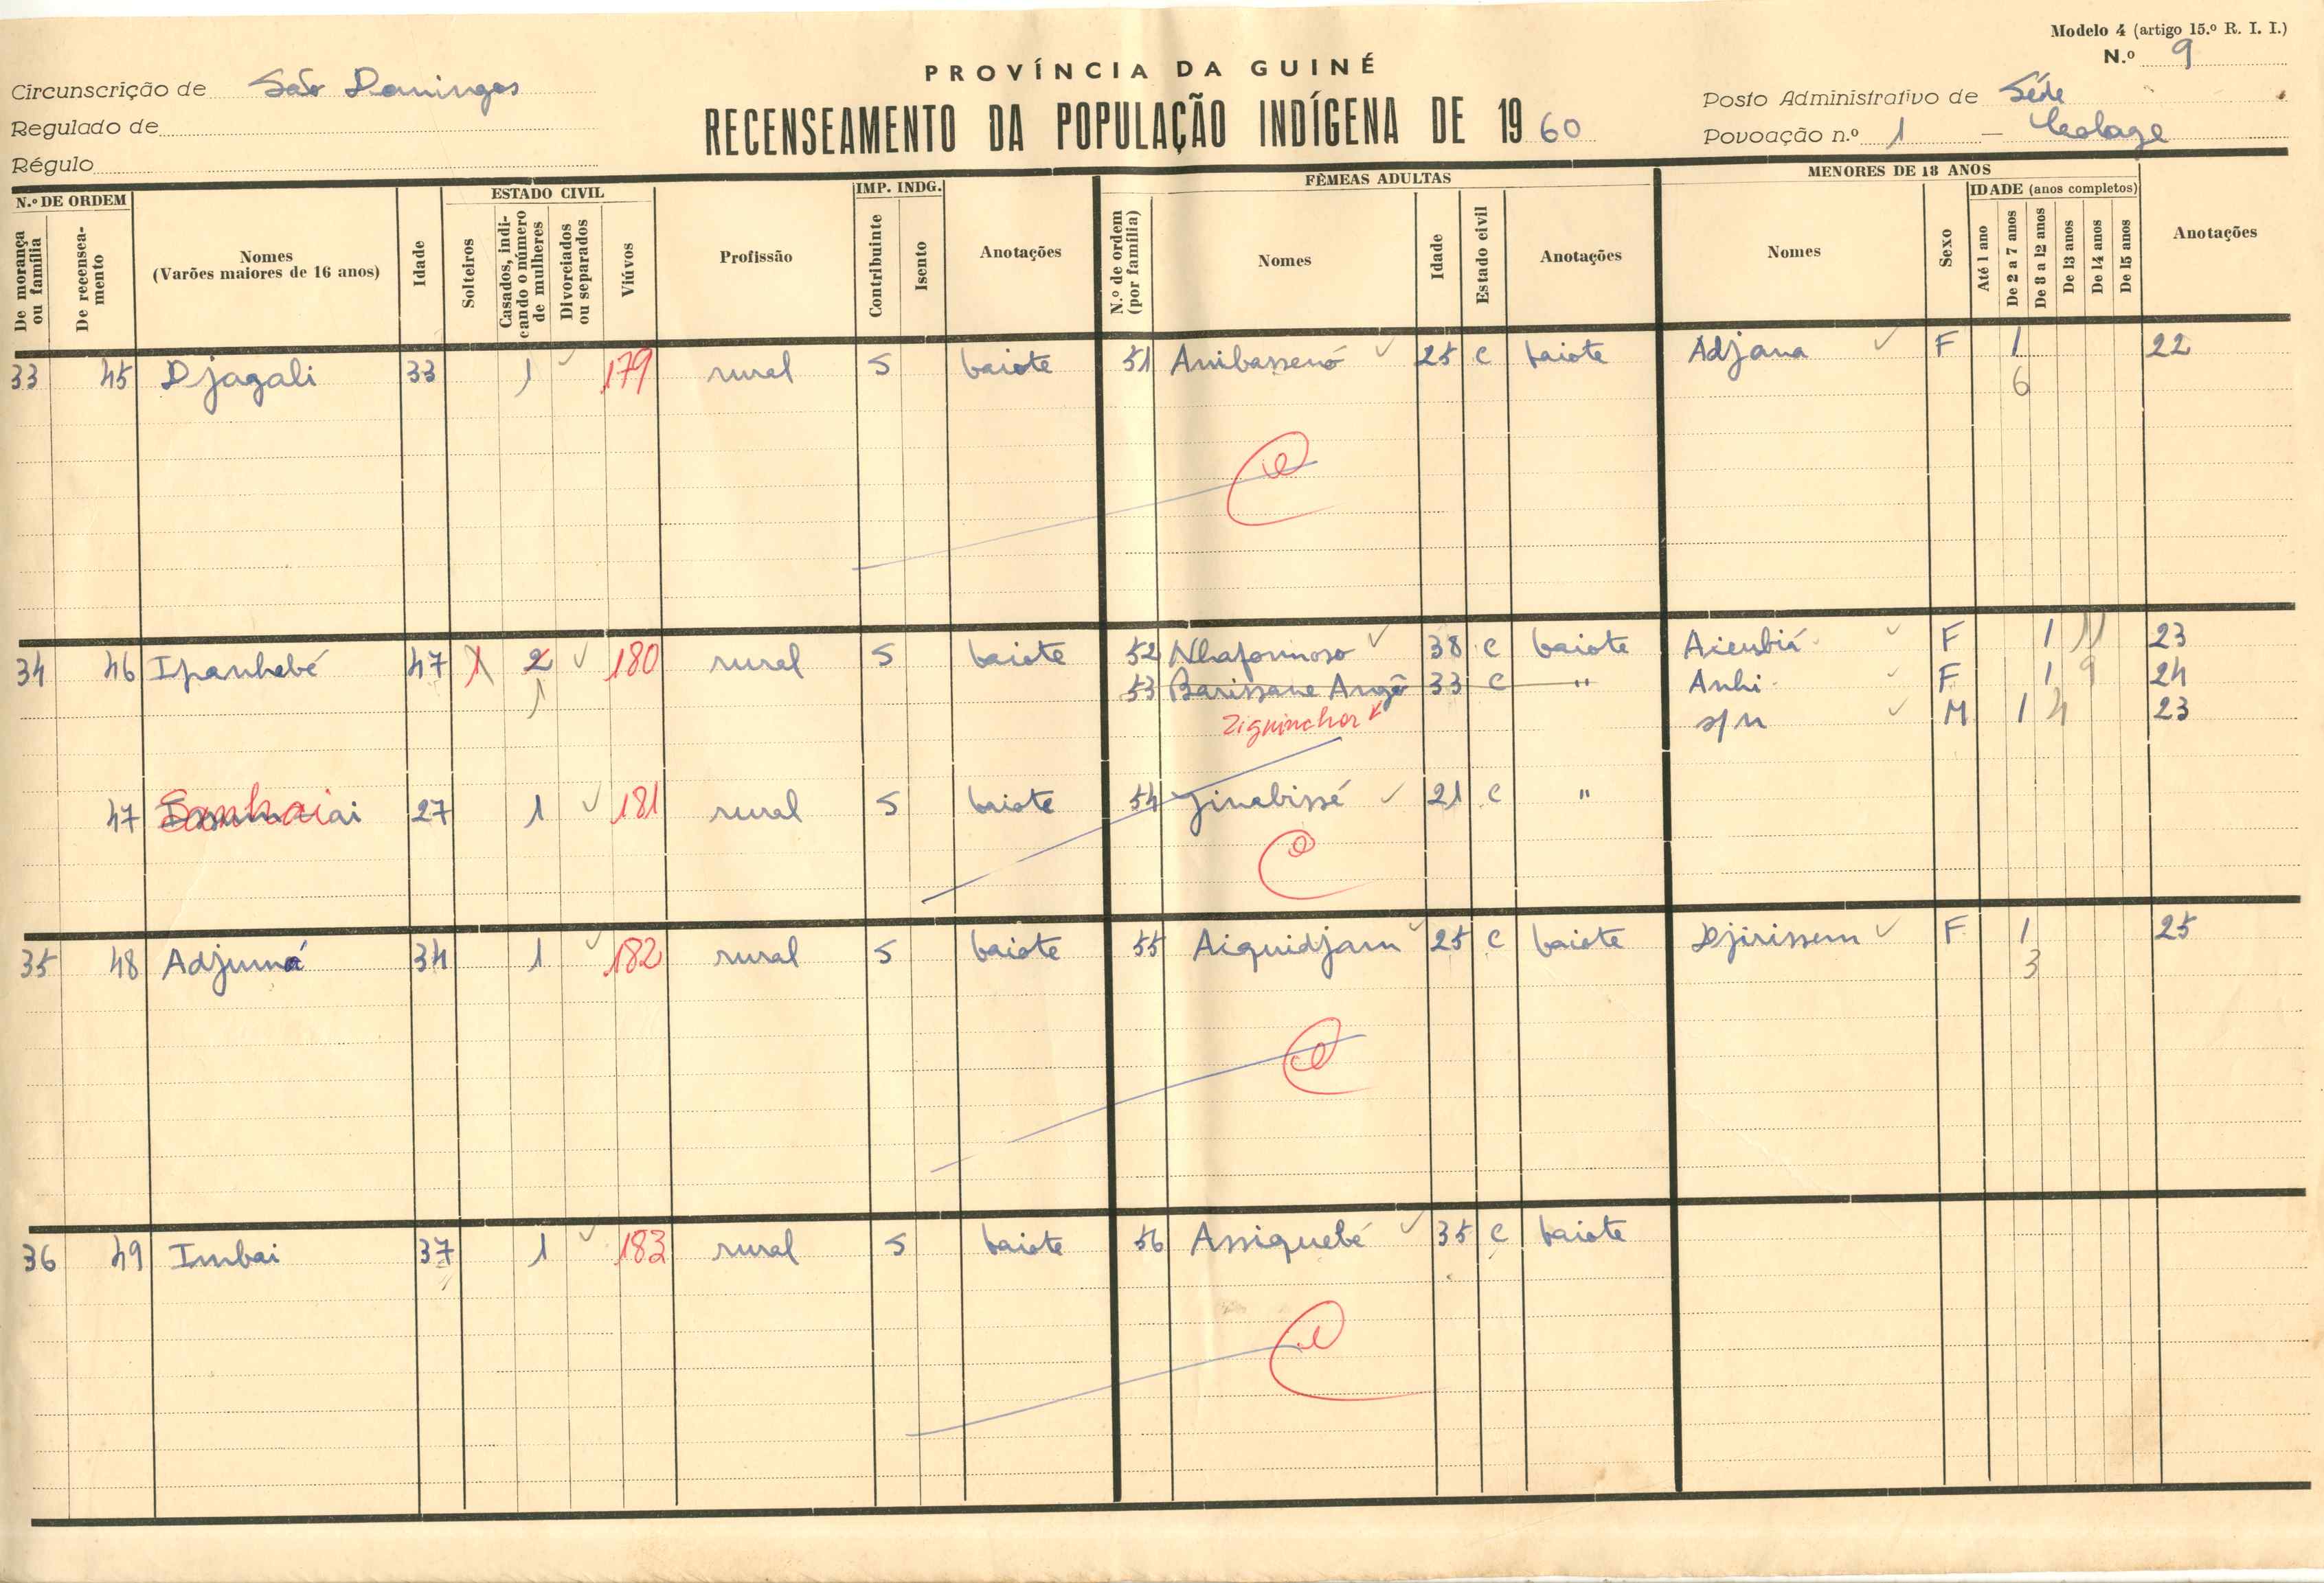 Modelo 4 (artigo 15.º R. I. I.)
N.º 9
PROVÍNCIA DA GUINÉ
RECENSEAMENTO DA POPULAÇÃO INDÍGENA DE 1960
Circunscrição de São Domingos
Regulado de
Régulo
Posto Administrativo de Séde
Povoação n.º 1 —
N.º DE ORDEM
De morança ou família
De recenseamento
Nomes
(Varões maiores de 16 anos)
Idade
ESTADO CIVIL
Solteiros
Casados, indicando o número de mulheres
Divorciados ou separados
Viúvos
Profissão
IMP. INDG.
Contribuinte
Isento
Anotações
FÊMEAS ADULTAS
N.º de ordem (por família)
Nomes
Idade
Estado civil
Anotações
MENORES DE 18 ANOS
Nomes
Sexo
IDADE (anos completos)
Até 1 ano
De 2 a 7 anos
De 8 a 12 anos
De 13 anos
De 14 anos
De 15 anos
Anotações
33 45 Djagali 33 1 179 rural S baiote 51 Anibassenó 25 C baiote Adjana F 1 22
6
34 46 Ipanhebé 47 1 2 180 rural S baiote 52 Nhaformoso 38 C baiote Aienbiá F 1 11 23
1 53 Barissane Angô 33 C " Anhi F 1 9 24
Ziguinchor s/n M 1 4 23
47 27 1 181 rural S baiote 54 Jinabissé 21 C "
35 48 Adjumá 34 1 182 rural S baiote 55 Aiquidjam 25 C baiote Djirissem F 1 25
3
36 49 Imbai 37 1 183 rural S baiote 56 Assiquebé 35 C baiote